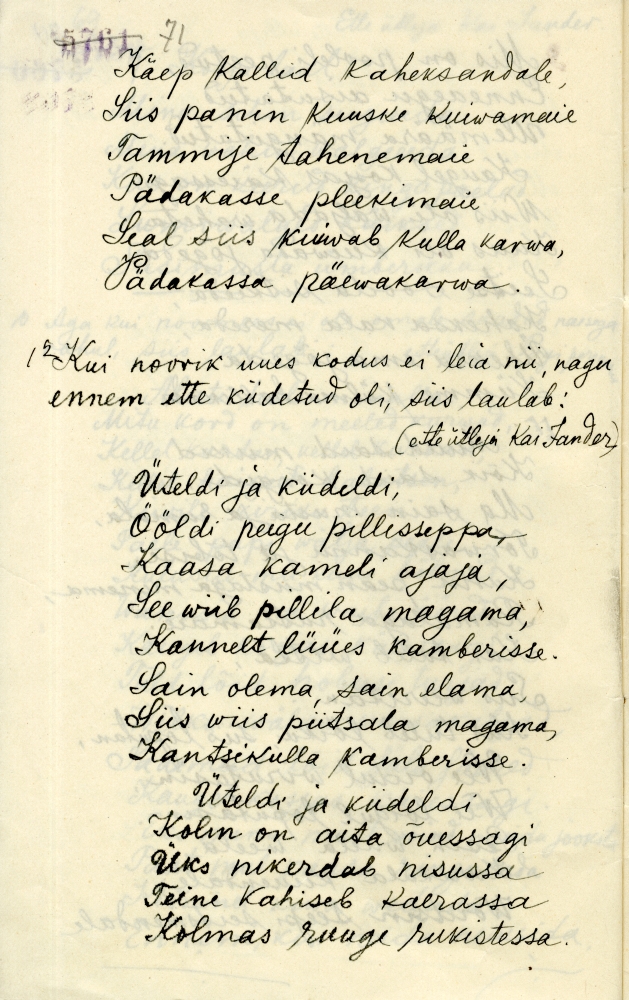 5761 71
Käep kallid kaheksandale,
Siis panin kuuske kuiwamaie
Tammije tahenemaie
Pädakasse pleekimaie
Seal siis kuiwab kulla karwa,
Pädakassa päewakarwa.
12 Kui noorik uues kodus ei leia nii, nagu
ennem ette kiidetud oli, siis laulab:
(ette ütleja Kai Sander)
Üteldi ja kiideldi,
Ööldi peigu pillisseppa,
Kaasa kameli ajaja,
See wiib pillila magama,
Kannelt lüües kamberisse.
Sain olema, sain elama,
Siis wiis piitsala magama,
Kantsikulla kamberisse.
Üteldi ja kiideldi
Kolm on aita õuessagi
Üks nikerdab nisussa
Teine kahiseb kaerassa
Kolmas ruuge rukistessa.